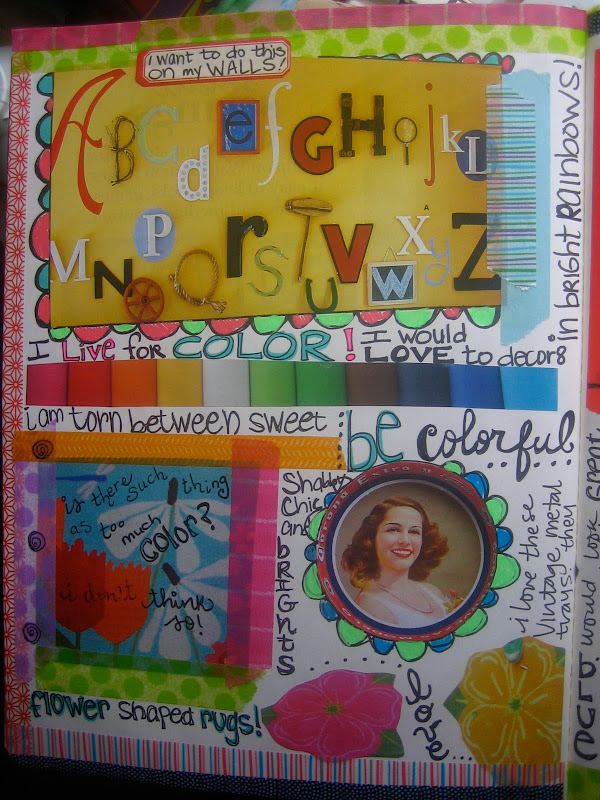 i want to do this
on my WALLS!
A B C d e f G H I j k L
M N O P Q r S T U V W X y Z
in bright Rainbows!
I Live for COLOR! I would
LOVE to decor8
i am torn between sweet
Shabby
Chic
and
brights
be colorful
is there such thing
as too much
color?
i don't think
so!
Corona Extra
i love these
Vintage metal
trays, they
would look great
flower shaped rugs!
love...